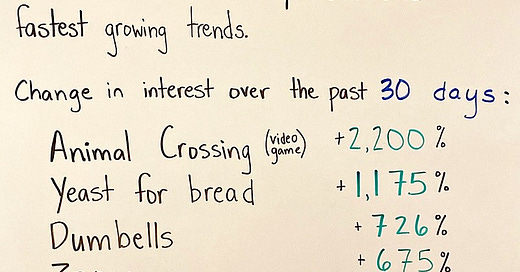 fastest growing trends.
Change in interest over the past 30 days:
Animal Crossing (video game) +2,200%
Yeast for bread +1,175%
Dumbells +726%
+675%